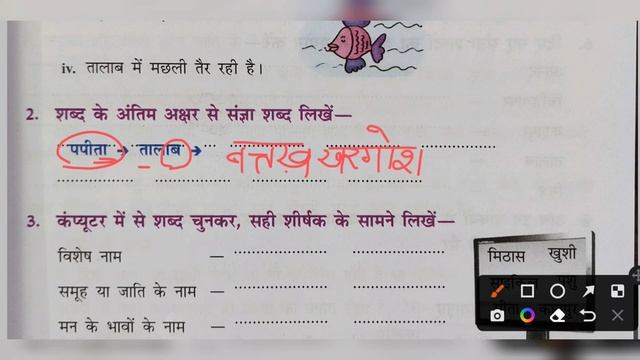 iv. तालाब में मछली तैर रही है।
2. शब्द के अंतिम अक्षर से संज्ञा शब्द लिखें—
पपीता → तालाब → बत्तख़ खरगोश
3. कंप्यूटर में से शब्द चुनकर, सही शीर्षक के सामने लिखें—
विशेष नाम —
मिठास खुशी
समूह या जाति के नाम —
मन के भावों के नाम —